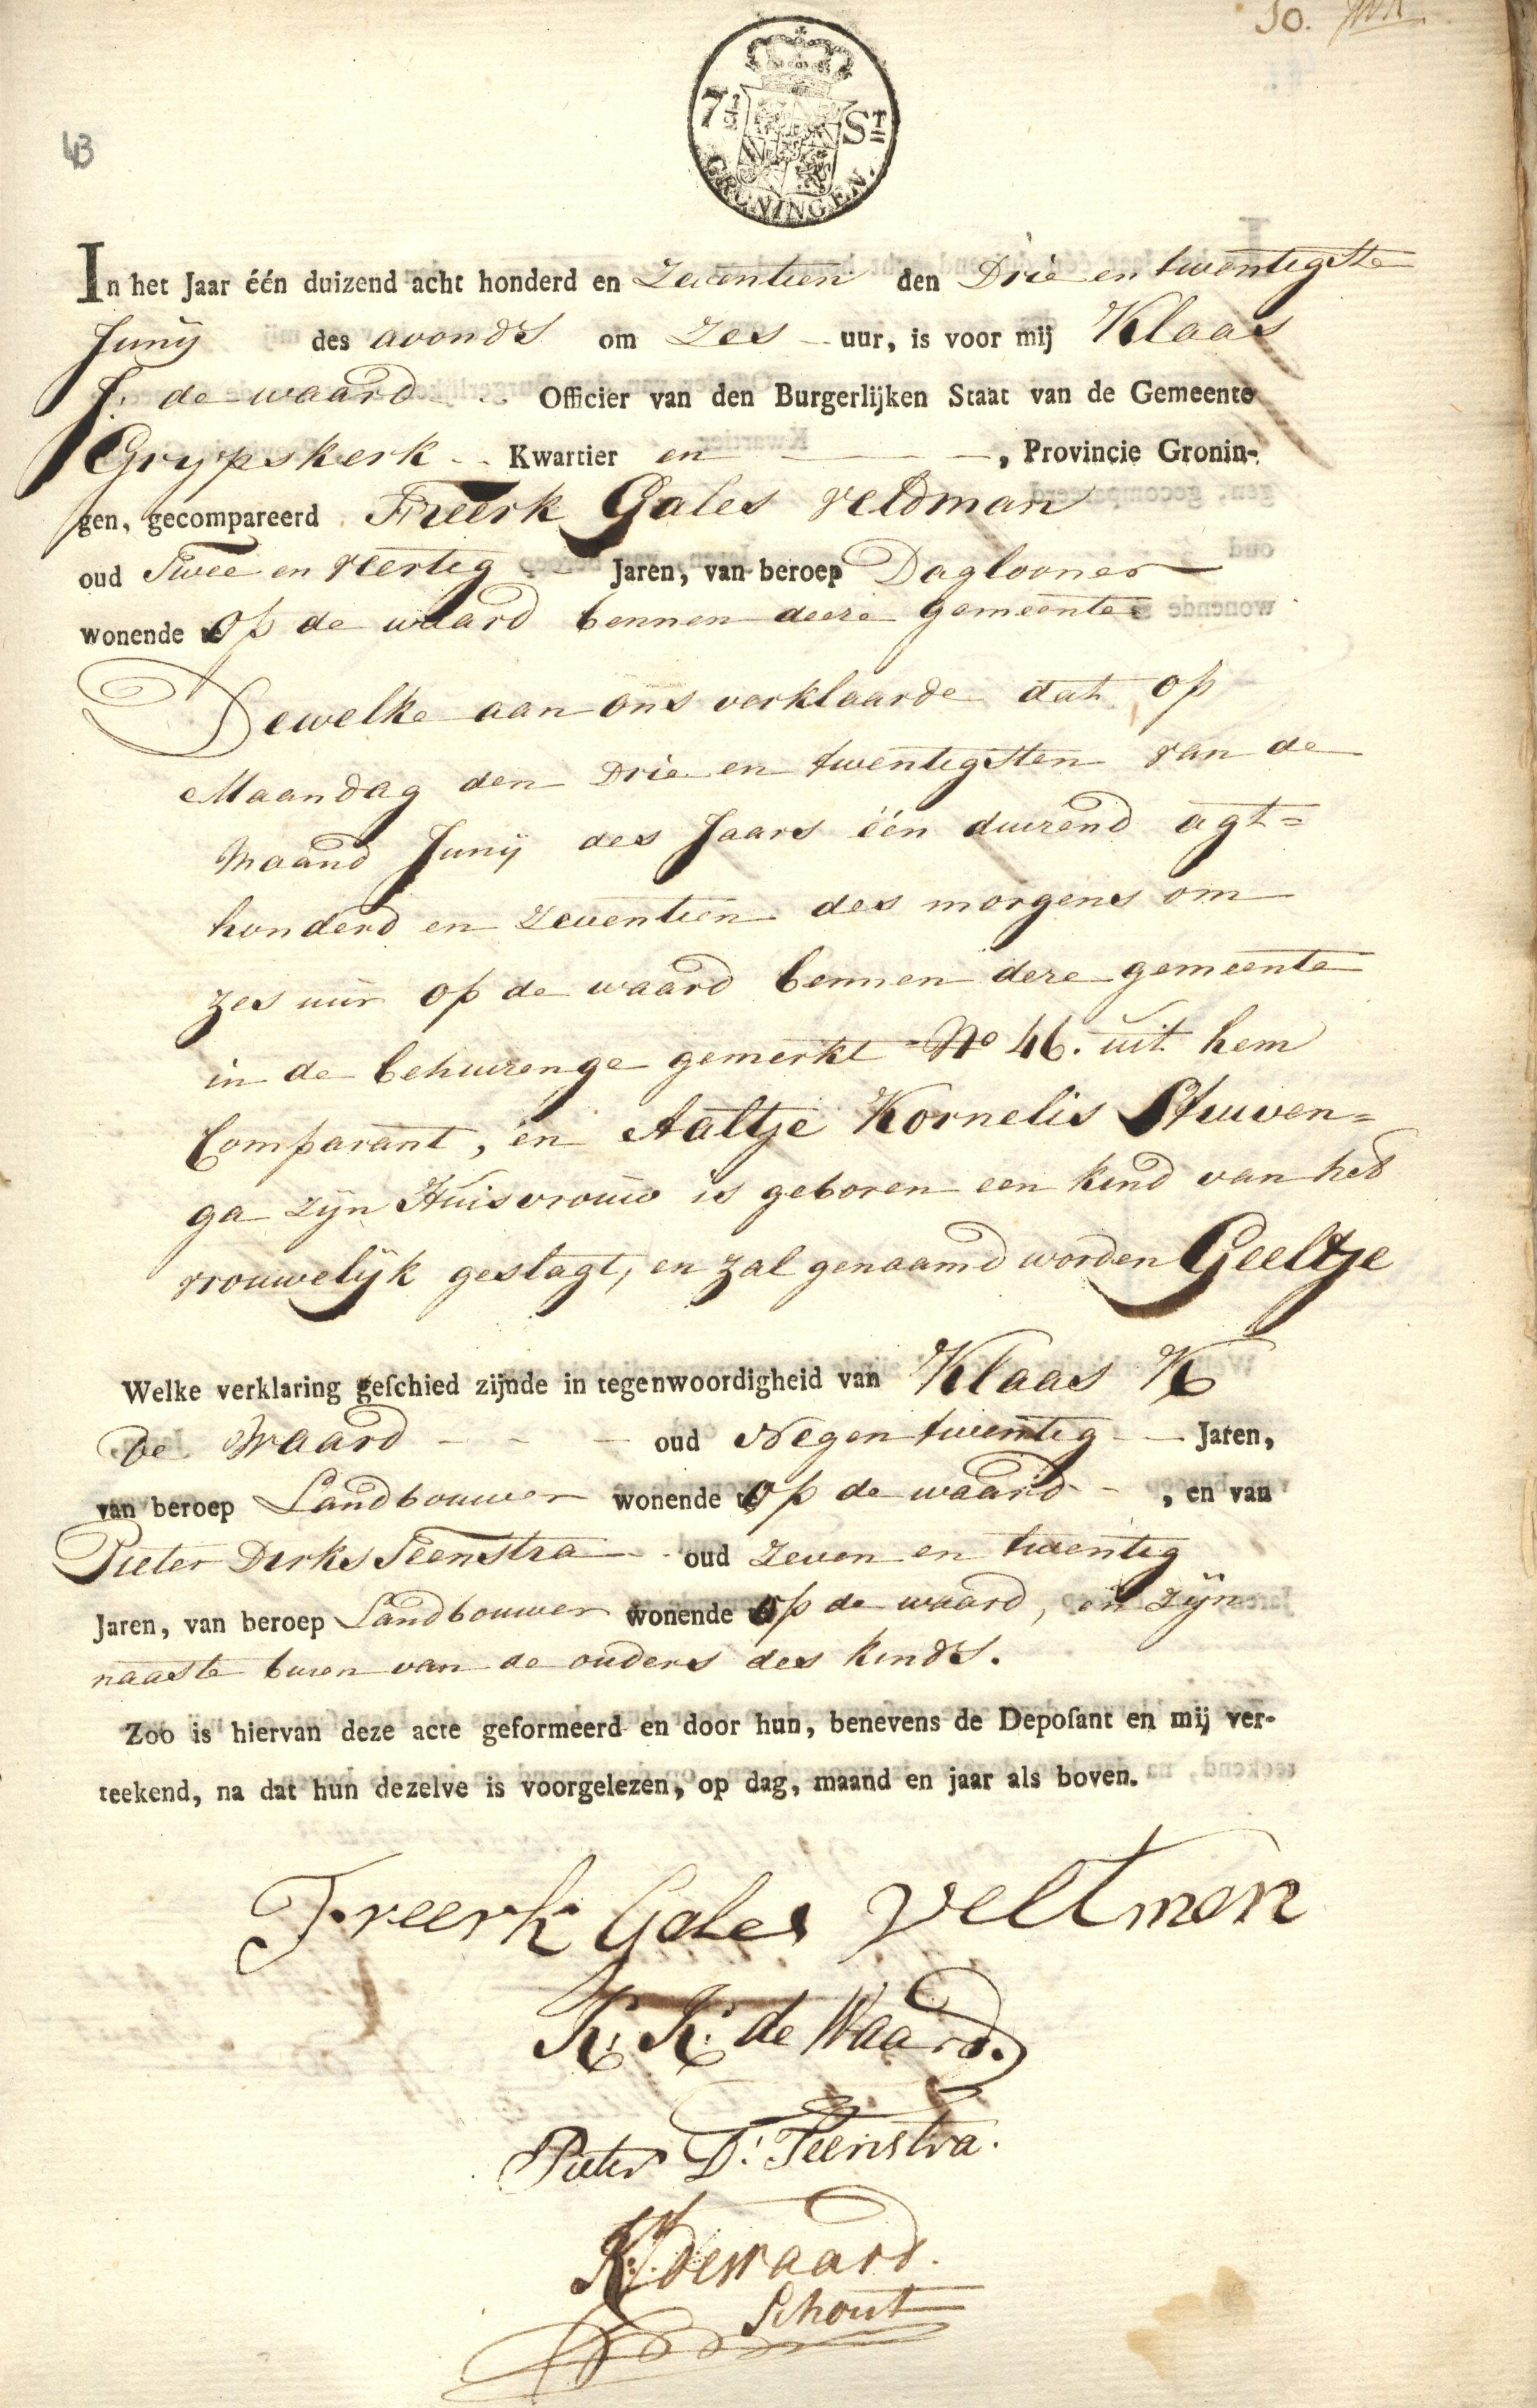 50.
43
7½ St
GRONINGEN.
In het Jaar één duizend acht honderd en Zeventien den Drie en twentigste
Junij des avonds om Zes uur, is voor mij Klaas
J. de waard Officier van den Burgerlijken Staat van de Gemeente
Grypskerk Kwartier en , Provincie Gronin-
gen, gecompareerd Freerk Gales veldman
oud Twee en veertig Jaren, van beroep Daglooner
wonende op de waard bennen deeze gemeente
Dewelke aan ons verklaarde dat op
Maandag den Drie en twentigsten van de
Maand Junij des Jaars één duizend agt=
honderd en zeventien des morgens om
zes uur op de waard bennen deze gemeente
in de behuizenge gemerkt No 46. uit hem
Comparant, en Aaltje Kornelis Stuiven=
ga zijn Huisvrouw is geboren een kend van het
vrouwelijk geslagt, en zal genaamd worden Geeltje
Welke verklaring geschied zijnde in tegenwoordigheid van Klaas K
De Waard oud Negen twentig Jaren,
van beroep Landbouwer wonende op de waard , en van
Pieter Derks Teenstra oud zeven en twentig
Jaren, van beroep Landbouwer wonende op de waard, en zijn
naaste buren van de ouders des kends.
Zoo is hiervan deze acte geformeerd en door hun, benevens de Deposant en mij ver-
teekend, na dat hun dezelve is voorgelezen, op dag, maand en jaar als boven.
Freerk Gales Veltman
K. K. de Waard.
Pieter D. Teenstra.
K. J. de Waard.
Schout